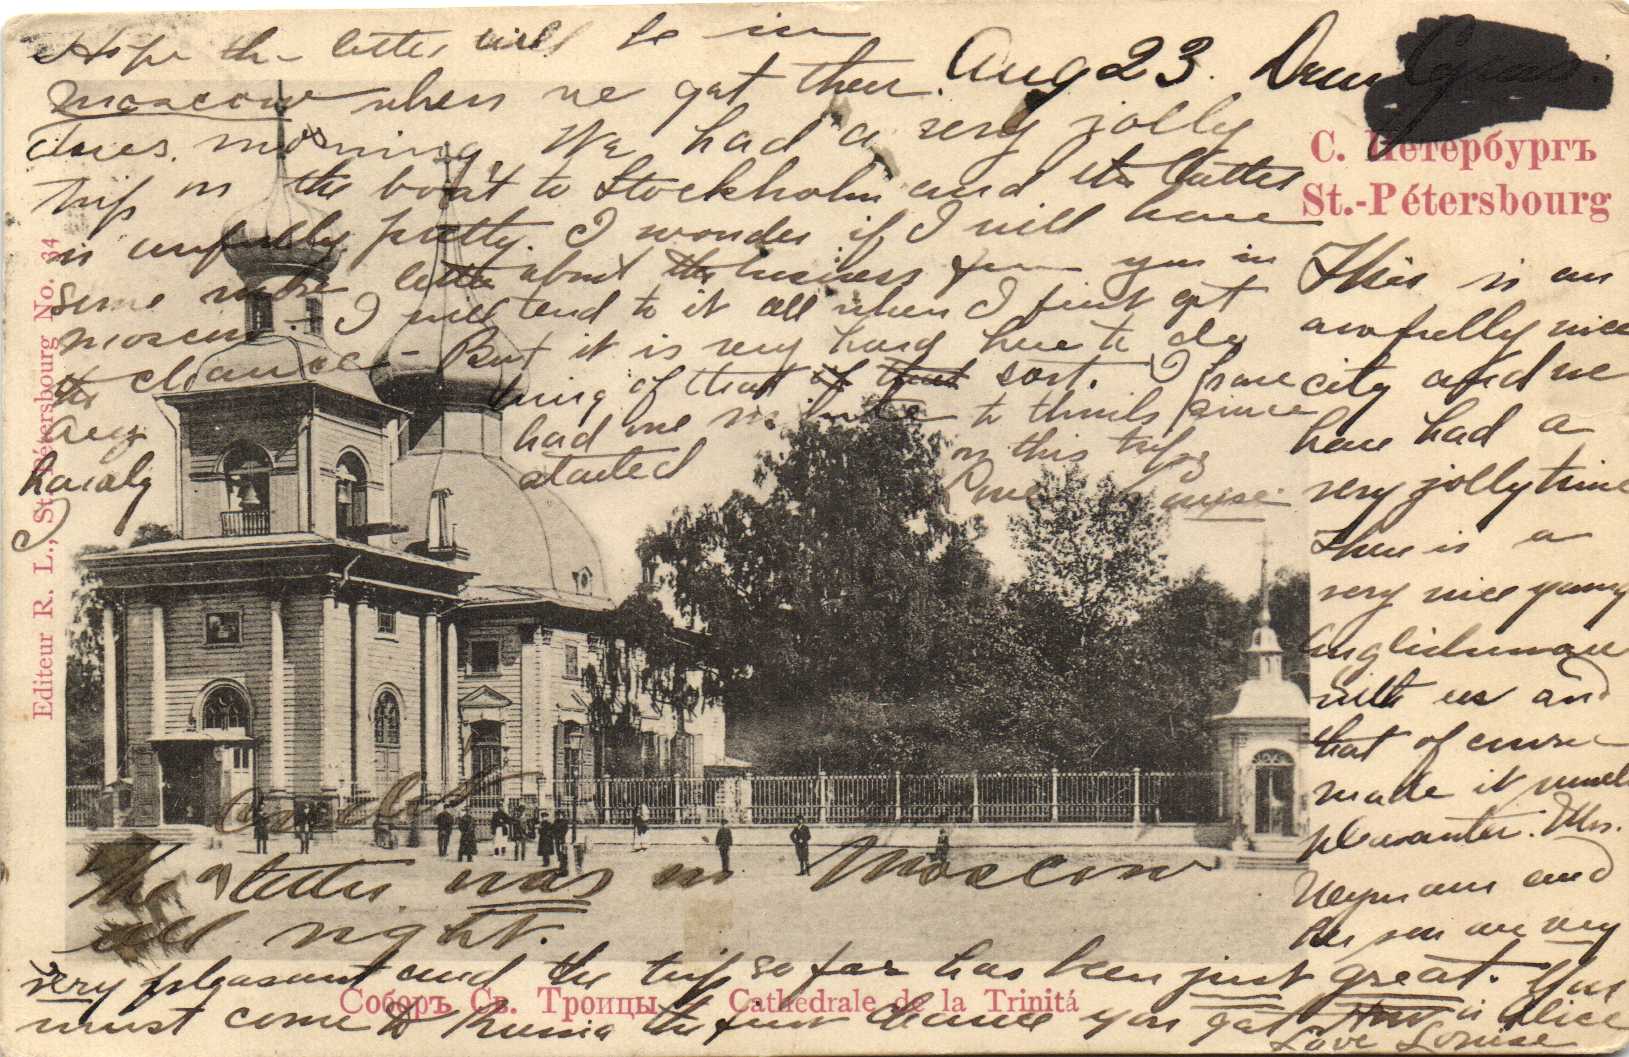 Aug 23. Dear
С. Петербургъ
St.-Pétersbourg
This is an
awfully nice
city and we
have had a
very jolly time
There is a
very nice young
Englishman
with us and
that of course
made it much
pleasanter. Mrs.
and
her son are very
very pleasant and the trip so far has been just great. You
must come to Russia the first chance you get
Love Louise
Hope the letter will be in
Moscow when we get there
Tues. morning. We had a very jolly
trip on the boat to Stockholm and the latter
is awfully pretty. I wonder if I will have
some more letter about the business from you in
Moscow - I will tend to it all when I first get
the chance - But it is very hard here to do
any thing of that sort. I have
had one minute to since
started on this trip
Louise
The letter was in Moscow
all right.
Editeur R. L., St. Pétersbourg No. 34
Соборъ Св. Троицы Cathédrale de la Trinitá